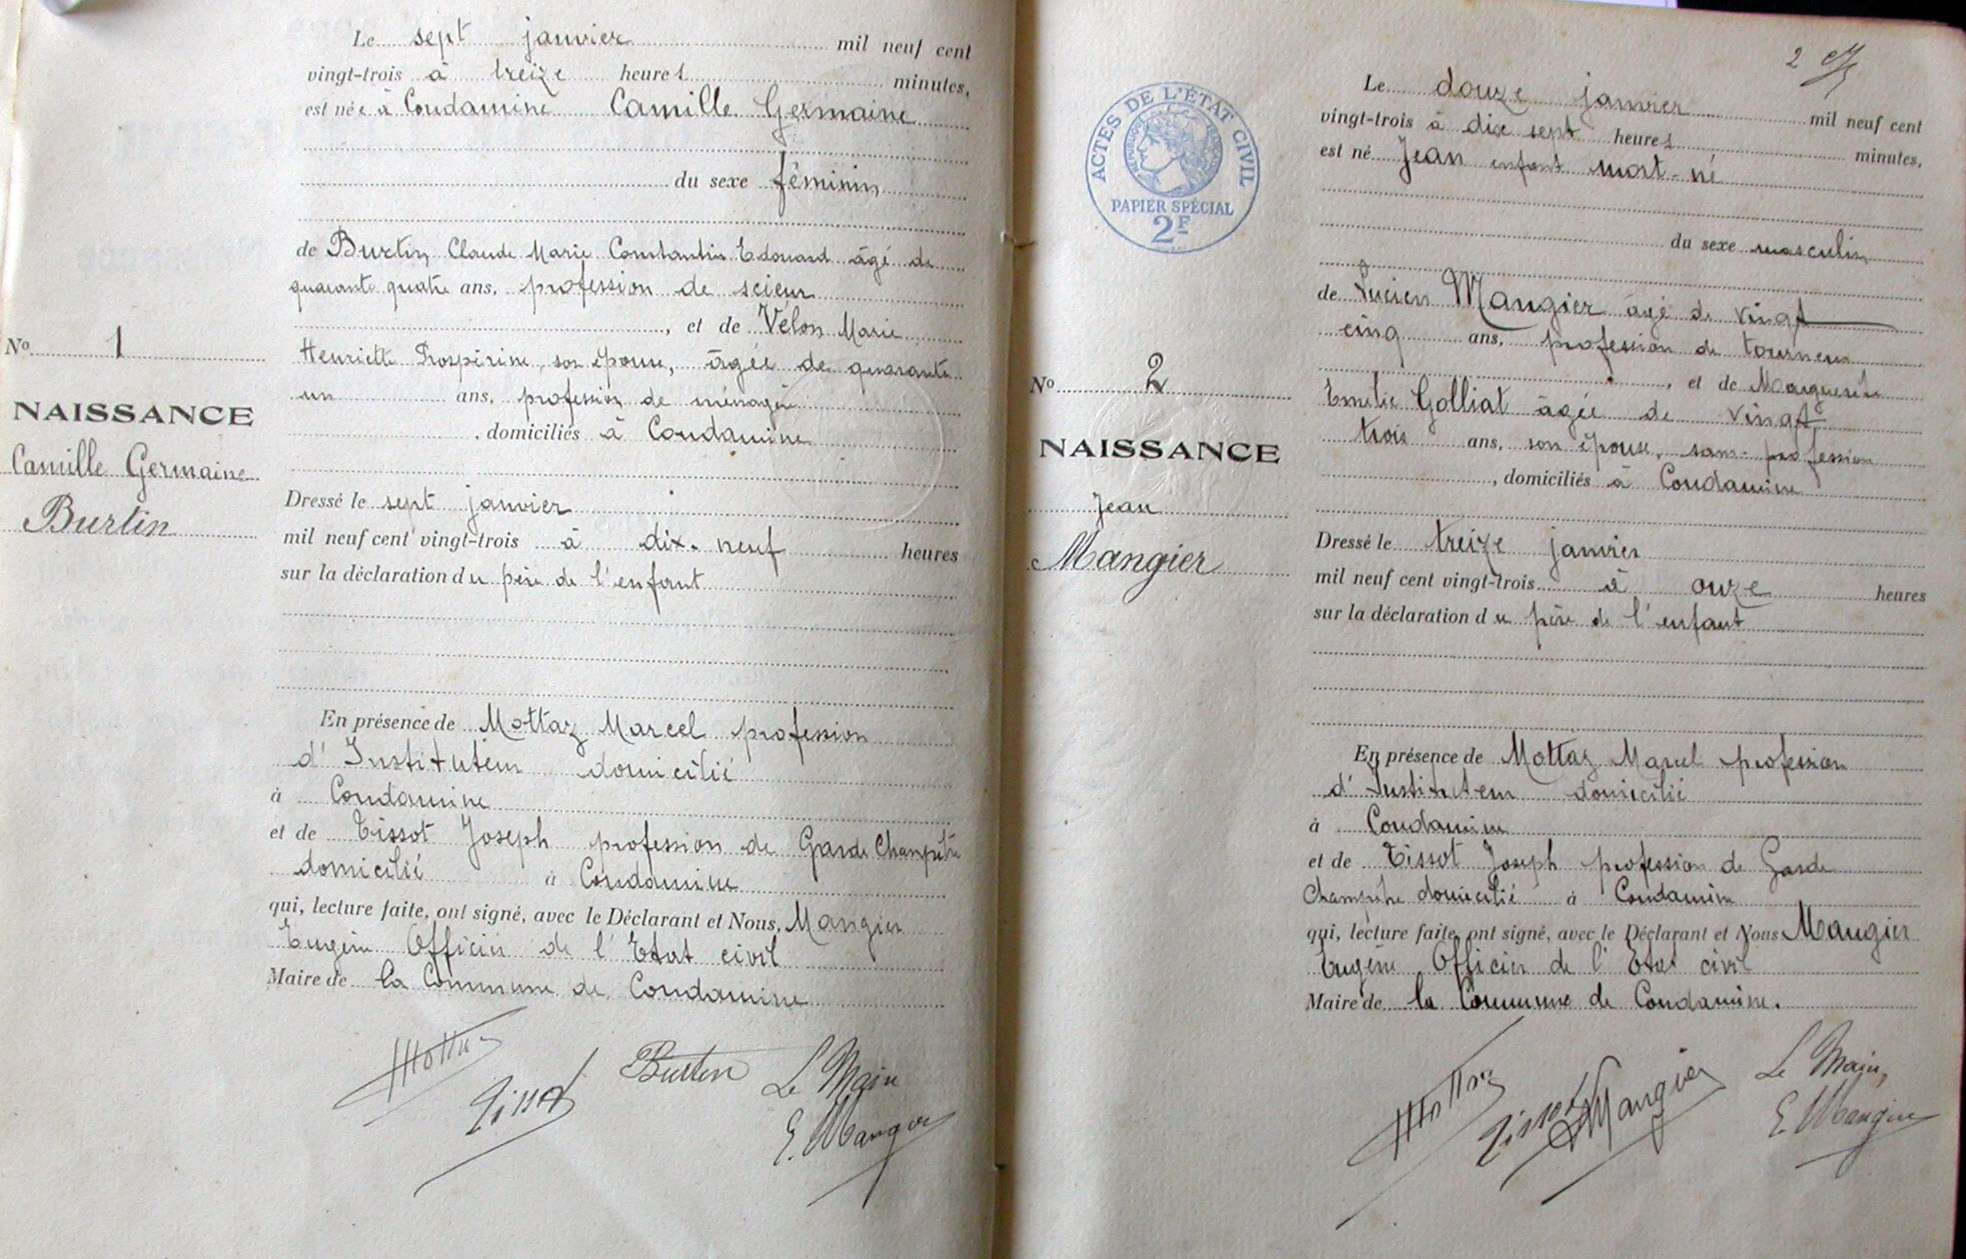 Le sept janvier mil neuf cent
vingt-trois à treize heures minutes,
est née à Condamine Camille Germaine
du sexe féminin
de Burtin Claude Marie Constantin Edouard âgé de
quarante quatre ans, profession de scieur
, et de Vélon Marie
Henriette Prospérine, son épouse, âgée de quarante
un ans, profession de ménagère
, domiciliés à Condamine
No 1
NAISSANCE
Camille Germaine
Burtin
Dressé le sept janvier
mil neuf cent vingt-trois à dix-neuf heures
sur la déclaration du père de l'enfant
En présence de Mottaz Marcel profession
d'Instituteur domicilié
à Condamine
et de Tissot Joseph profession de Garde Champêtre
domicilié à Condamine
qui, lecture faite, ont signé, avec le Déclarant et Nous, Mangier
Eugène Officier de l'Etat civil
Maire de la Commune de Condamine
Mottaz
Tissot
Burtin
Le Maire
E. Mangier
2
ACTES DE L'ÉTAT CIVIL
RÉPUBLIQUE FRANÇAISE
PAPIER SPÉCIAL
2F
Le douze janvier mil neuf cent
vingt-trois à dix sept heures minutes,
est né Jean enfant mort-né
du sexe masculin
de Lucien Mangier âgé de vingt
cinq ans, profession de tourneur
, et de Marguerite
Emelie Golliat âgée de vingt
trois ans, son épouse, sans profession
, domiciliés à Condamine
No 2
NAISSANCE
Jean
Mangier
Dressé le treize janvier
mil neuf cent vingt-trois à onze heures
sur la déclaration du père de l'enfant
En présence de Mottaz Marcel profession
d'Instituteur domicilié
à Condamine
et de Tissot Joseph profession de Garde
Champêtre domicilié à Condamine
qui, lecture faite, ont signé, avec le Déclarant et Nous Mangier
Eugène Officier de l'Etat civil
Maire de la Commune de Condamine.
Mottaz
Tissot
Mangier
Le Maire,
E. Mangier